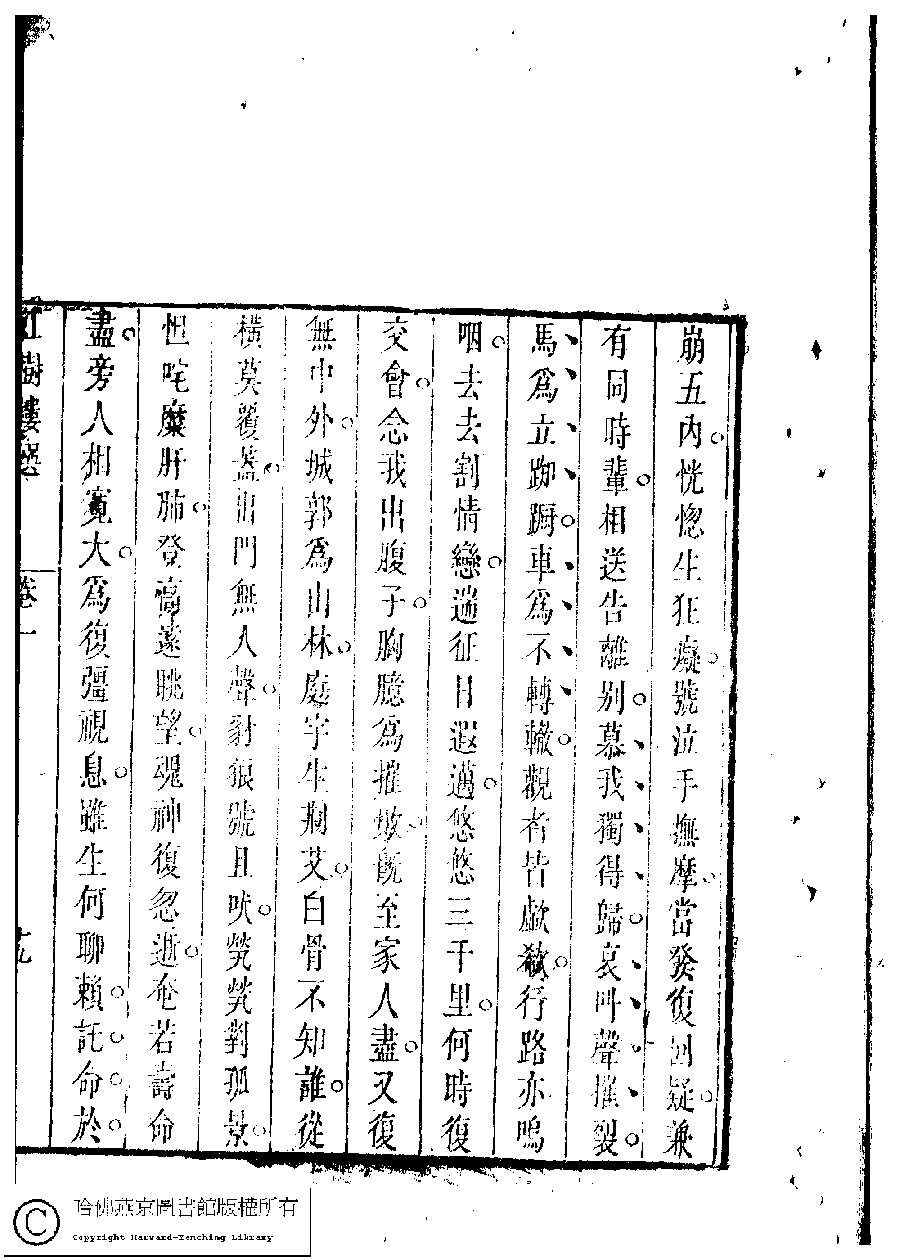 崩五內恍惚生狂癡號泣手撫摩當發復回疑兼
有同時輩相送告離别慕我獨得歸哀叫聲摧裂
馬爲立踟蹰車爲不轉轍觀者皆歔欷行路亦嗚
咽去去割情戀遄征日遐邁悠悠三千里何時復
交會念我出腹子胸臆爲摧敗旣至家人盡又復
無中外城郭爲山林庭宇生荆艾白骨不知誰從
橫莫覆蓋出門無人聲豺狼號且吠煢煢對孤景
怛咤糜肝肺登高遠眺望魂神復忽逝奄若壽命
盡旁人相寬大爲復彊視息雖生何聊賴託命於
紅樹樓選
卷一
哈佛燕京圖書館版權所有
Copyright Harvard-Yenching Library